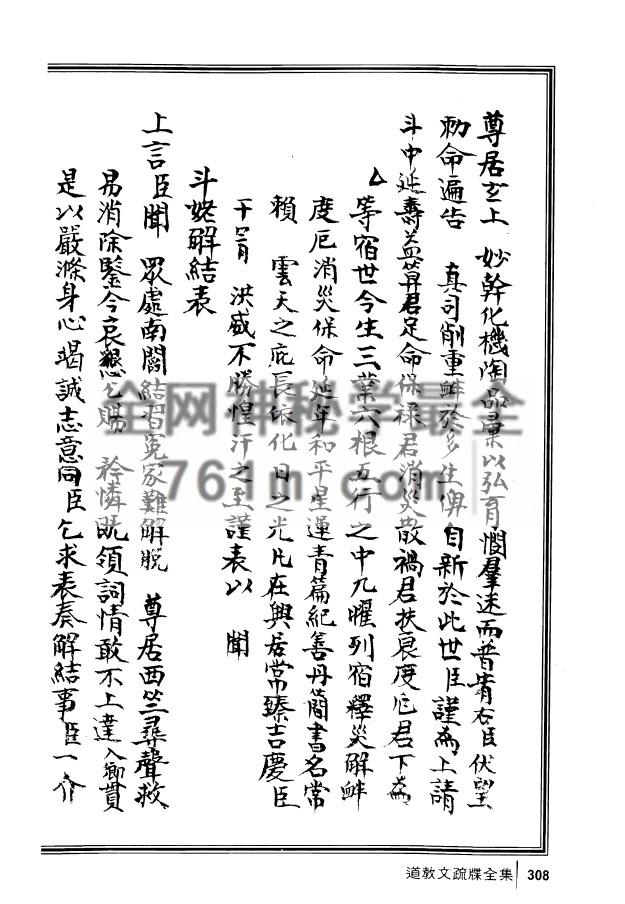 尊居玄上　妙幹化機陶品彙以弘育憫羣迷而普宥右臣伏望
勑命遍告　真司削重衅於多生俾自新於此世臣謹為上請
斗中延壽益算君足命保祿君消災散禍君扶衰度厄君下為
厶等宿世今生三業六根五行之中九曜列宿釋災解衅
度厄消災保命延年和平星運青篇紀善丹簡書名常
賴　雲天之庇長依化日之光凡在興居常臻吉慶臣
干冒　洪威不勝惶汗之至謹表以　聞
斗姥解結表
上言臣聞　眾處南閻結習冤家難解脫　尊居西竺尋聲救
易消除鑒今哀懇乞賜　矜憐既領詞情敢不上達入鄉貫
是以嚴滌身心竭誠志意同臣乞求表奏解結事臣一介
全网神秘学最全
761m.com
道教文疏牒全集 308